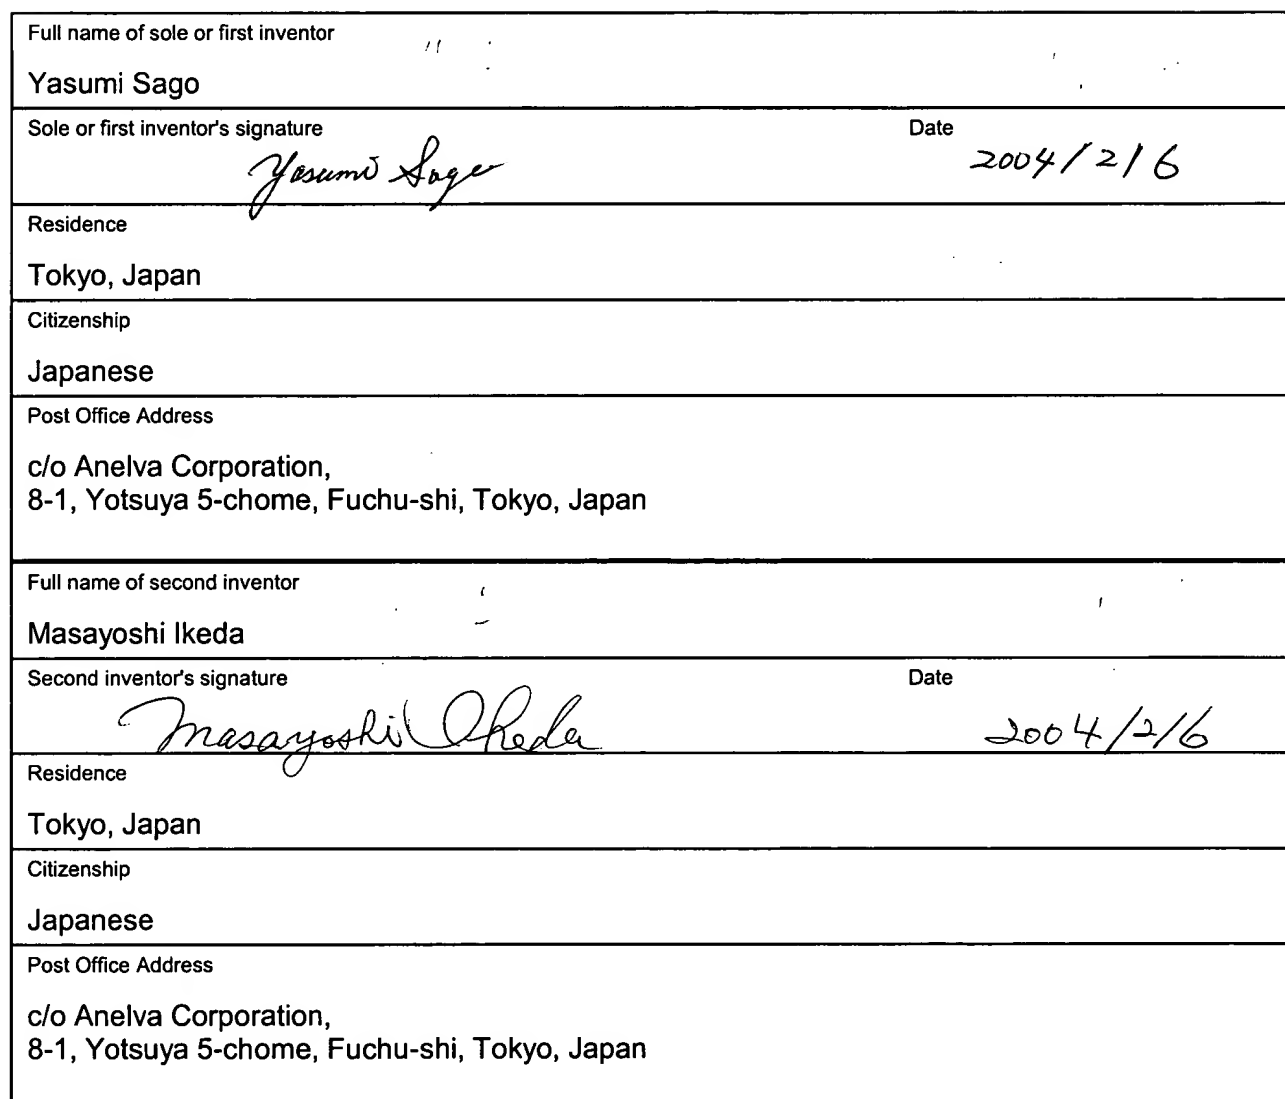 Full name of sole or first inventor
Yasumi Sago
Sole or first inventor's signature Date
Yasumi Sago 2004/2/6
Residence
Tokyo, Japan
Citizenship
Japanese
Post Office Address
c/o Anelva Corporation,
8-1, Yotsuya 5-chome, Fuchu-shi, Tokyo, Japan
Full name of second inventor
Masayoshi Ikeda
Second inventor's signature Date
Masayoshi Ikeda 2004/2/6
Residence
Tokyo, Japan
Citizenship
Japanese
Post Office Address
c/o Anelva Corporation,
8-1, Yotsuya 5-chome, Fuchu-shi, Tokyo, Japan